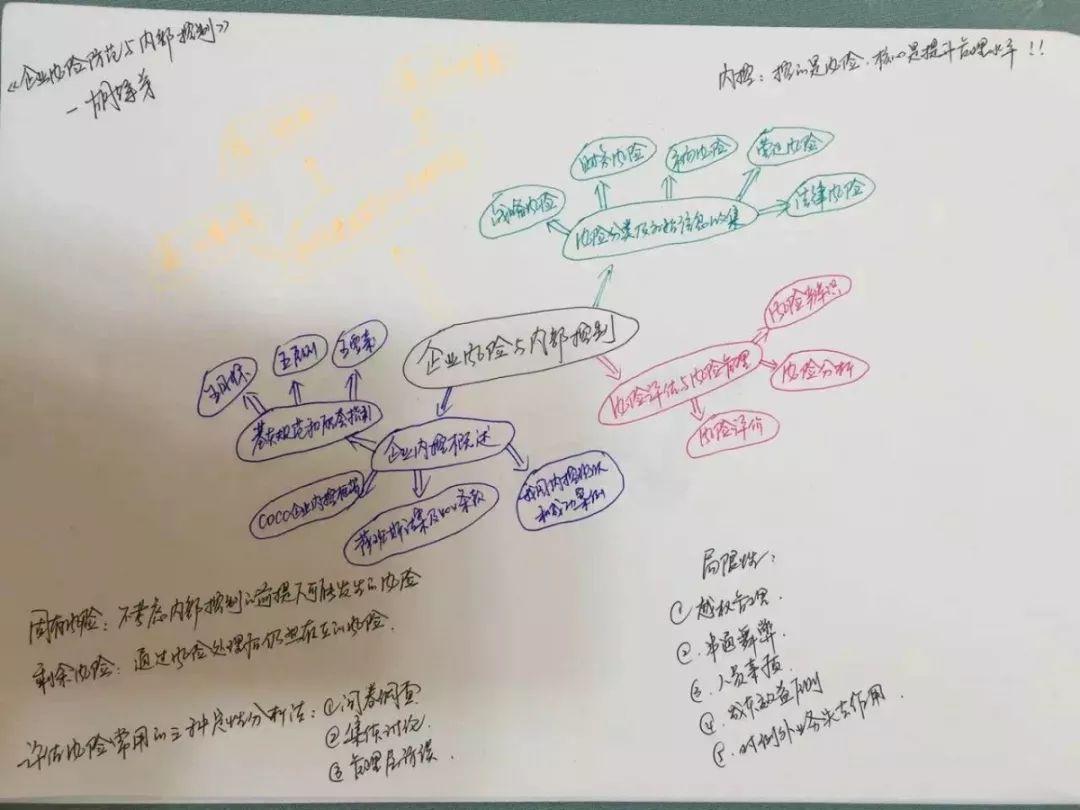 《企业风险防范与内部控制》
内控：控的是风险，核心是提升管理水平！！
财务风险
市场风险
营运风险
战略风险
法律风险
风险分类及初始信息收集
企业风险与内部控制
风险辨识
风险评估与风险管理
风险分析
风险评价
五目标
五原则
五要素
基本规范和配套指引
企业内控概述
COCO企业内控框架
萨班斯法案及404条款
我国内控现状
和成功案例
固有风险：不考虑内部控制的前提下可能发生的风险
剩余风险：通过风险处理后仍然存在的风险.
评估风险常用的三种定性分析法：①问卷调查
②集体讨论
③管理层访谈
局限性：
①越权管理.
②.串通舞弊.
③.人员素质
④.成本效益原则
⑤.对例外业务失去作用.